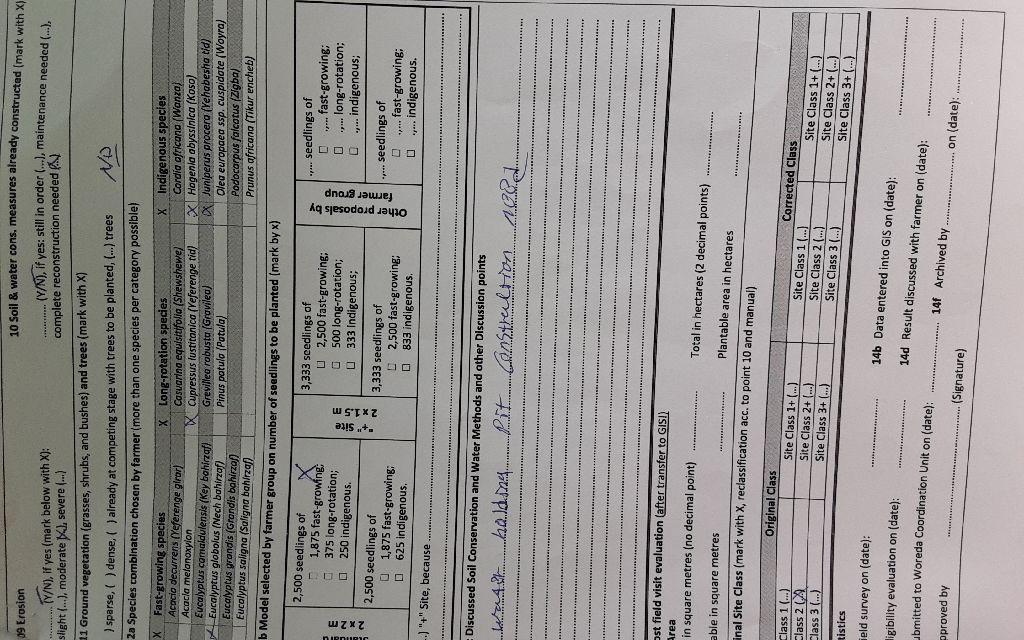 09 Erosion
(Y/N), if yes (mark below with X):
slight (...), moderate (X), severe (...)
10 Soil & water cons. measures already constructed (mark with X)
(Y/N), if yes: still in order (...), maintenance needed (...),
complete reconstruction needed (X)
11 Ground vegetation (grasses, shrubs, and bushes) and trees (mark with X)
) sparse, ( ) dense, ( ) already at competing stage with trees to be planted, (...) trees
NO
2a Species combination chosen by farmer (more than one species per category possible)
X Fast-growing species X Long-rotation species X Indigenous species
Acacia decurrens (Yeferenge girar) Casuarina equistifolia (Shewshewe) Cordia africana (Wanza)
Acacia melanoxylon X Cupressus lusitanica (Yeferenge tid) X Hagenia abyssinica (Koso)
Eucalyptus camaldulensis (Key bahirzaf) Grevillea robusta (Gravilea) X Juniperus procera (Yehabesha tid)
Eucalyptus globolus (Nech bahirzaf) Pinus patula (Patula) Olea europaea ssp. cuspidate (Woyra)
Eucalyptus grandis (Grandis bahirzaf) Podocarpus falcatus (Zigba)
Eucalyptus saligna (Saligna bahirzaf) Prunus africana (Tikur encheb)
b Model selected by farmer group on number of seedlings to be planted (mark by x)
Standard
2 x 2 m
2,500 seedlings of
☐ 1,875 fast-growing; X
☐ 375 long-rotation;
☐ 250 indigenous.
2,500 seedlings of
☐ 1,875 fast-growing;
☐ 625 indigenous.
"+" Site
2 x 1.5 m
3,333 seedlings of
☐ 2,500 fast-growing;
☐ 500 long-rotation;
☐ 333 indigenous;
3,333 seedlings of
☐ 2,500 fast-growing;
☐ 833 indigenous.
Other proposals by
farmer group
,.... seedlings of
☐ ,.... fast-growing;
☐ ,.... long-rotation;
☐ ,.... indigenous;
,.... seedlings of
☐ ,.... fast-growing;
☐ ,.... indigenous.
..) "+" Site, because
Discussed Soil Conservation and Water Methods and other Discussion points
Pit Construction need
ost field visit evaluation (after transfer to GIS!)
Area
in square metres (no decimal point) Total in hectares (2 decimal points)
able in square metres Plantable area in hectares
inal Site Class (mark with X, reclassification acc. to point 10 and manual)
Original Class Corrected Class
Class 1 (...) Site Class 1+ (...) Site Class 1 (...) Site Class 1+ (...)
Class 2 (X) Site Class 2+ (...) Site Class 2 (...) Site Class 2+ (...)
Class 3 (...) Site Class 3+ (...) Site Class 3 (...) Site Class 3+ (...)
istics
ield survey on (date): 14b Data entered into GIS on (date):
ligibility evaluation on (date): 14d Result discussed with farmer on (date):
ubmitted to Woreda Coordination Unit on (date): 14f Archived by on (date):
pproved by (Signature)